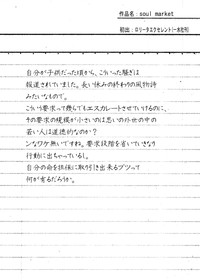 作品名：soul market
初出：ロリータエクセレント（一水社刊
自分が子供だった頃から、こういった騒ぎは
報道されていました。長い休みの終わりの風物詩
みたいなので。
こういう要求って幾らでもエスカレートさせていけるのに、
その要求の規模が小さいのは思いの外世の中の
若い人は道徳的なのか？
ンなワケ無いですね。要求段階を省いていきなり
行動に出ちゃっているし。
自分の命を担保に取り引き出来るブツって
何が有るだろうか。